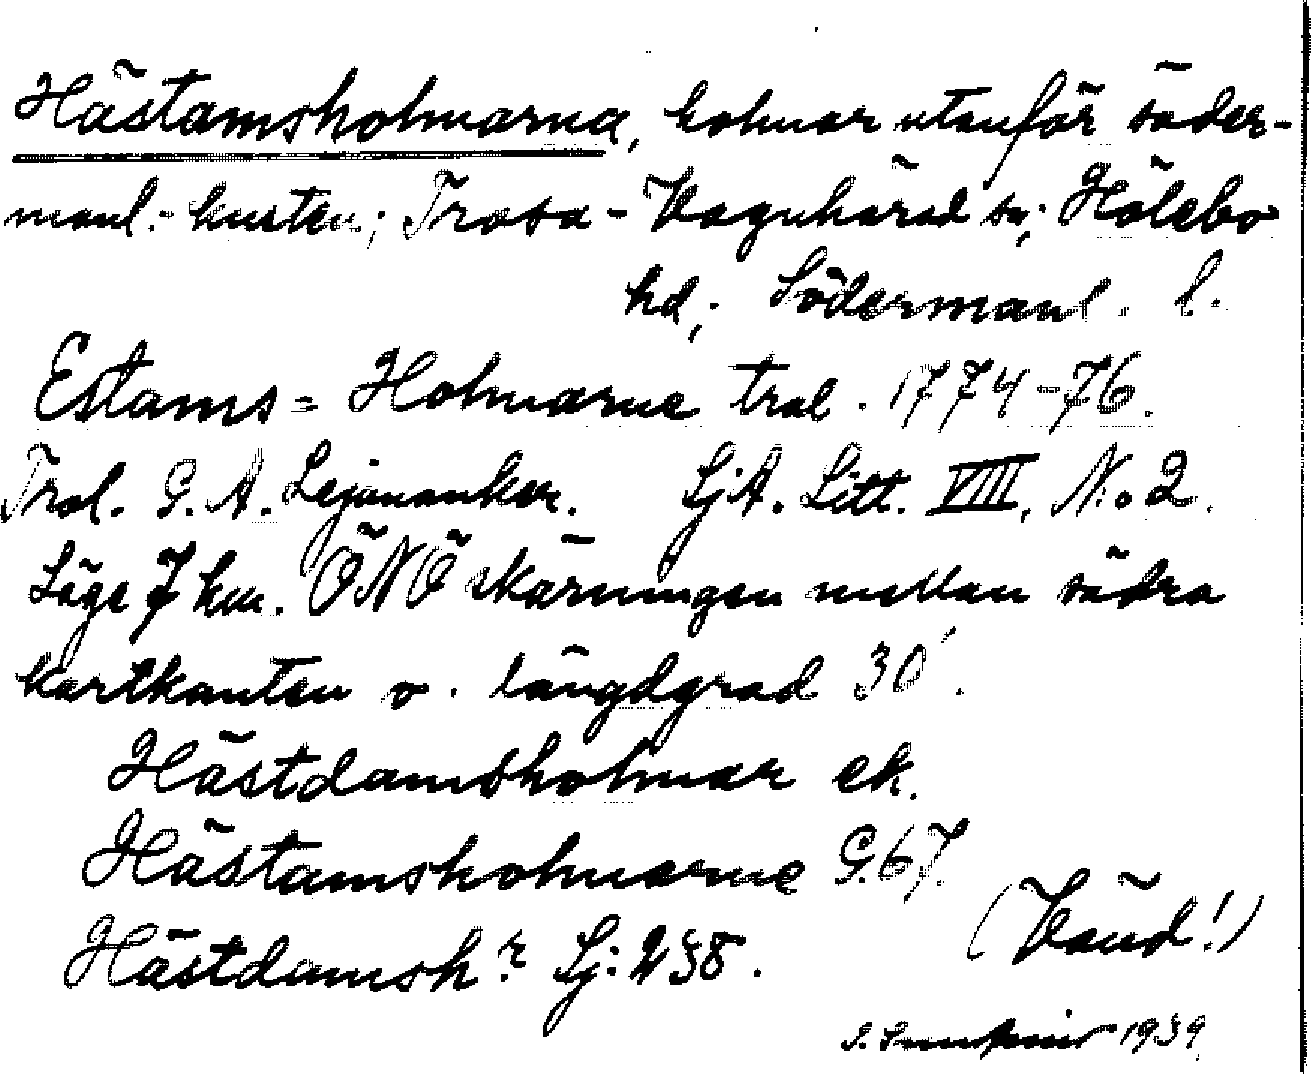 Hästamsholmarna, holmar utanför söder-
manl.-kusten; Trosa-Vagnhärad sn; Hölebo
hd; Södermanl. l.
Estams=Holmarne trol. 1774-76.
Trol. G. A. Lejonanker. SjA. Litt. VIII, N:o 2.
Läge 7 km. ÖNÖ skärningen mellan södra
kartkanten o. längdgrad 30'.
Hästdamsholmar ek.
Hästamsholmarne G.67.
Hästdamsh:r Sj:
(Vänd!)
1939